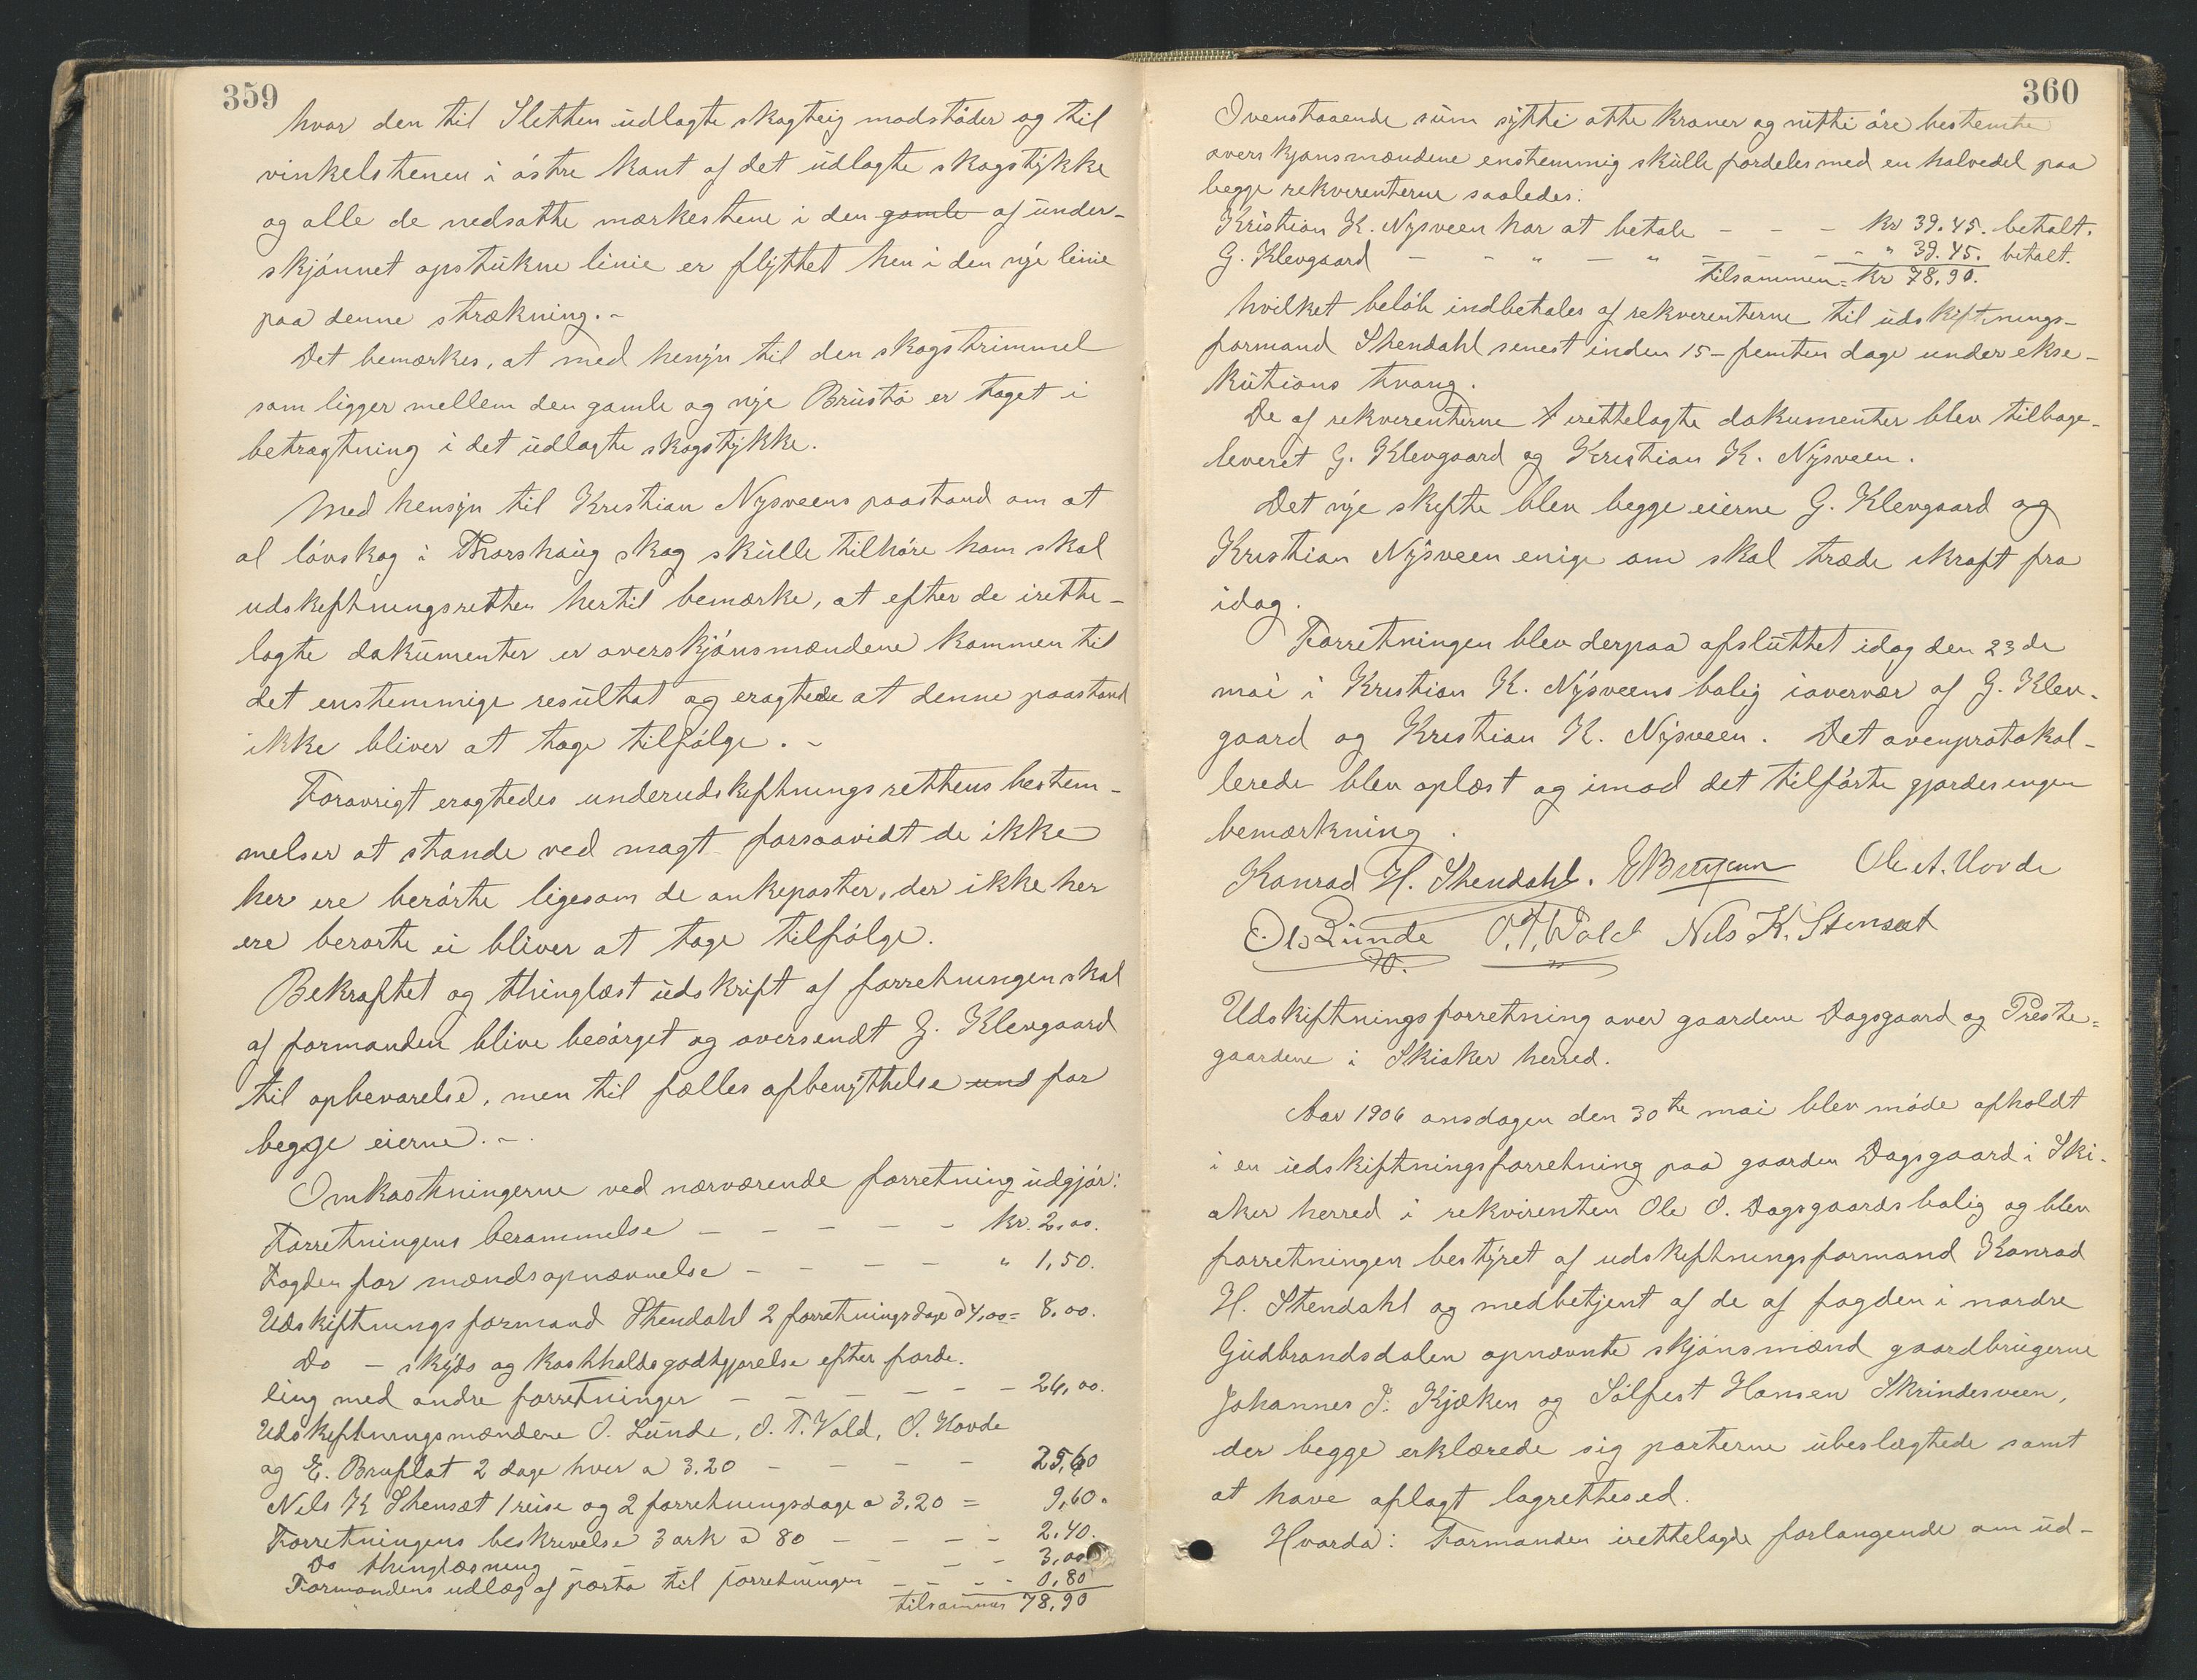 359
hvor den til Sletten udlagte skogteig modstöder og til
vinkelstenen i östre kant af det udlagte skogstykke
og alle de nedsatte mærkestene i den gamle af under-
skjönnet opstukne linie er flyttet hen i den nye linie
paa denne strækning. -
Det bemærkes, at med hensyn til den skogstrimmel
som ligger mellem den gamle og nye Brustö er taget i
betragtning i det udlagte skogstykke.
Med hensyn til Kristian Nysveens paastand om at
al lövskog i Thorshaug skog skulle tilhöre ham skal
udskiftningsretten hertil bemærke, at efter de irette-
lagte dokumenter er overskjönsmændene kommen til
det enstemmige resultat og eragtede at denne paastand
ikke bliver at tage tilfölge. -
Forövrigt eragtedes underudskiftningsrettens bestem-
melser at stande ved magt forsaavidt de ikke
her ere berörte ligesom de ankeposter, der ikke her
ere berørte ei bliver at tage tilfölge.
Bekræftet og thinglæst udskrift af forretningen skal
af formanden blive besörget og oversendt G. Klevgaard
til opbevarelse, men til fælles afbenyttelse und for
begge eierne. -
Omkostningerne ved nærværende forretning udgjör:
Forretningens berammelse - - - - - kr. 2,00.
Fogden for mændsopnævnelse - - - - " 1,50.
Udskiftningsformand Stendahl 2 forretningsdage à 4,00 = 8,00.
Do - skyds og kostholdsgodtgjørelse efter forde-
ling med andre forretninger - - - - - - 26,00.
Udskiftningsmændene O. Lunde, O. T. Vold, O. Hovde
og E. Bruflat 2 dage hver a 3.20 - - - - 25,60
Nils K Stensæt 1 reise og 2 forretningsdage a 3,20 = 9,60.
Forretningens beskrivelse 3 ark à 80 - - - - 2.40.
Do thinglæsning - - - - 3,00
Formandens udlæg af porto til forretningen - - - - 0,80
tilsammen 78,90
360
Ovenstaaende sum sytti otte kroner og nitti öre bestemte
overskjønsmændene enstemmig skulle fordeles med en halvedel paa
begge rekvirenterne saaledes:
Kristian K. Nysveen har at betale - - - kr 39.45. betalt.
G. Klevgaard - - " - " - - - - " 39.45. betalt.
Tilsammen = kr 78,90.
hvilket belöb indbetales af rekvirenterne til udskiftnings-
formand Stendahl senest inden 15 - femten dage under ekse-
kutions tvang.
De af rekvirenterne irettelagte dokumenter blev tilbage-
leveret G. Klevgaard og Kristian K. Nysveen.
Det nye skifte blev begge eierne G. Klevgaard og
Kristian Nysveen enige om skal træde ikraft fra
idag.
Forretningen blev derpaa afsluttet idag den 23de
mai i Kristian K. Nysveens bolig i overvær af G. Klev-
gaard og Kristian K. Nysveen. Det ovenprotokol-
lerede blev oplæst og imod det tilförte gjordes ingen
bemærkning.
Konrad H. Stendahl. Ole A. Hovde
Ols Lunde O. T. Vold Nils K. Stensæt
Udskiftningsforretning over gaardene Dagsgaard og Preste-
gaardene i Skiaker herred.
Aar 1906 onsdagen den 30te mai blev möde afholdt
i en udskiftningsforretning paa gaarden Dagsgaard i Ski-
aker herred i rekvirenten Ole O. Dagsgaards bolig og blev
forretningen bestyret af udskiftningsformand Konrad
H. Stendahl og medbetjent af de af fogden i nordre
Gudbrandsdalen opnævnte skjönsmænd gaardbrugerne
Johannes J. Kjæken og Sölfest Hansen Skrindesveen,
der begge erklærede sig parterne ubeslægtede samt
at have aflagt lagretteed.
Hvorda: Formanden irettelagde forlangende om ud-